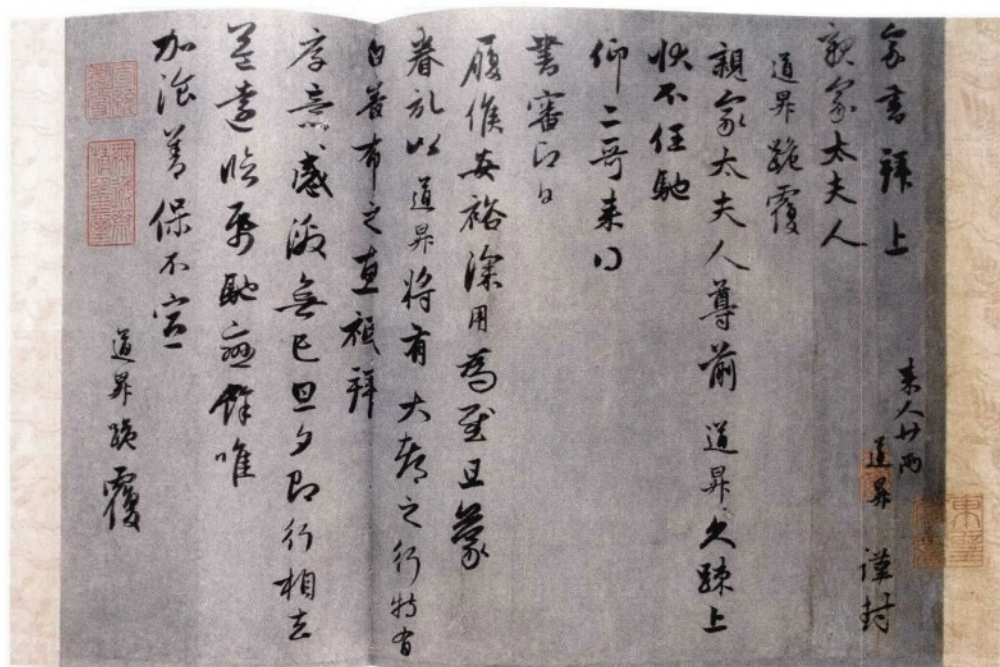 家書拜上
來人廿兩
親家太夫人
道昇 謹封
道昇跪覆
親家太夫人尊前 道昇久疎上
狀不任馳
仰二哥来得
書審即日
履候安裕深用為慰且蒙
眷記以道昇將有大都之行特有
白番布之惠祗拜
厚意感激無已旦夕即行相去
益遠臨紙馳戀餘唯
加飡善保不宣
道昇跪覆